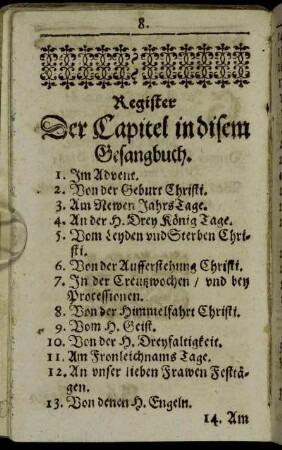 8.
Register
Der Capitel in disem
Gesangbuch.
1. Im Advent.
2. Von der Geburt Christi.
3. Am Newen Jahrs Tage.
4. An der H. Drey König Tage.
5. Vom Leyden vnd Sterben Chri-
sti.
6. Von der Aufferstehung Christi.
7. In der Creutzwochen / vnd bey
Processionen.
8. Von der Himmelfahrt Christi.
9. Vom H. Geist.
10. Von der H. Dreyfaltigkeit.
11. Am Fronleichnams Tage.
12. An vnser lieben Frawen Festtä-
gen.
13. Von denen H. Engeln.
14. Am